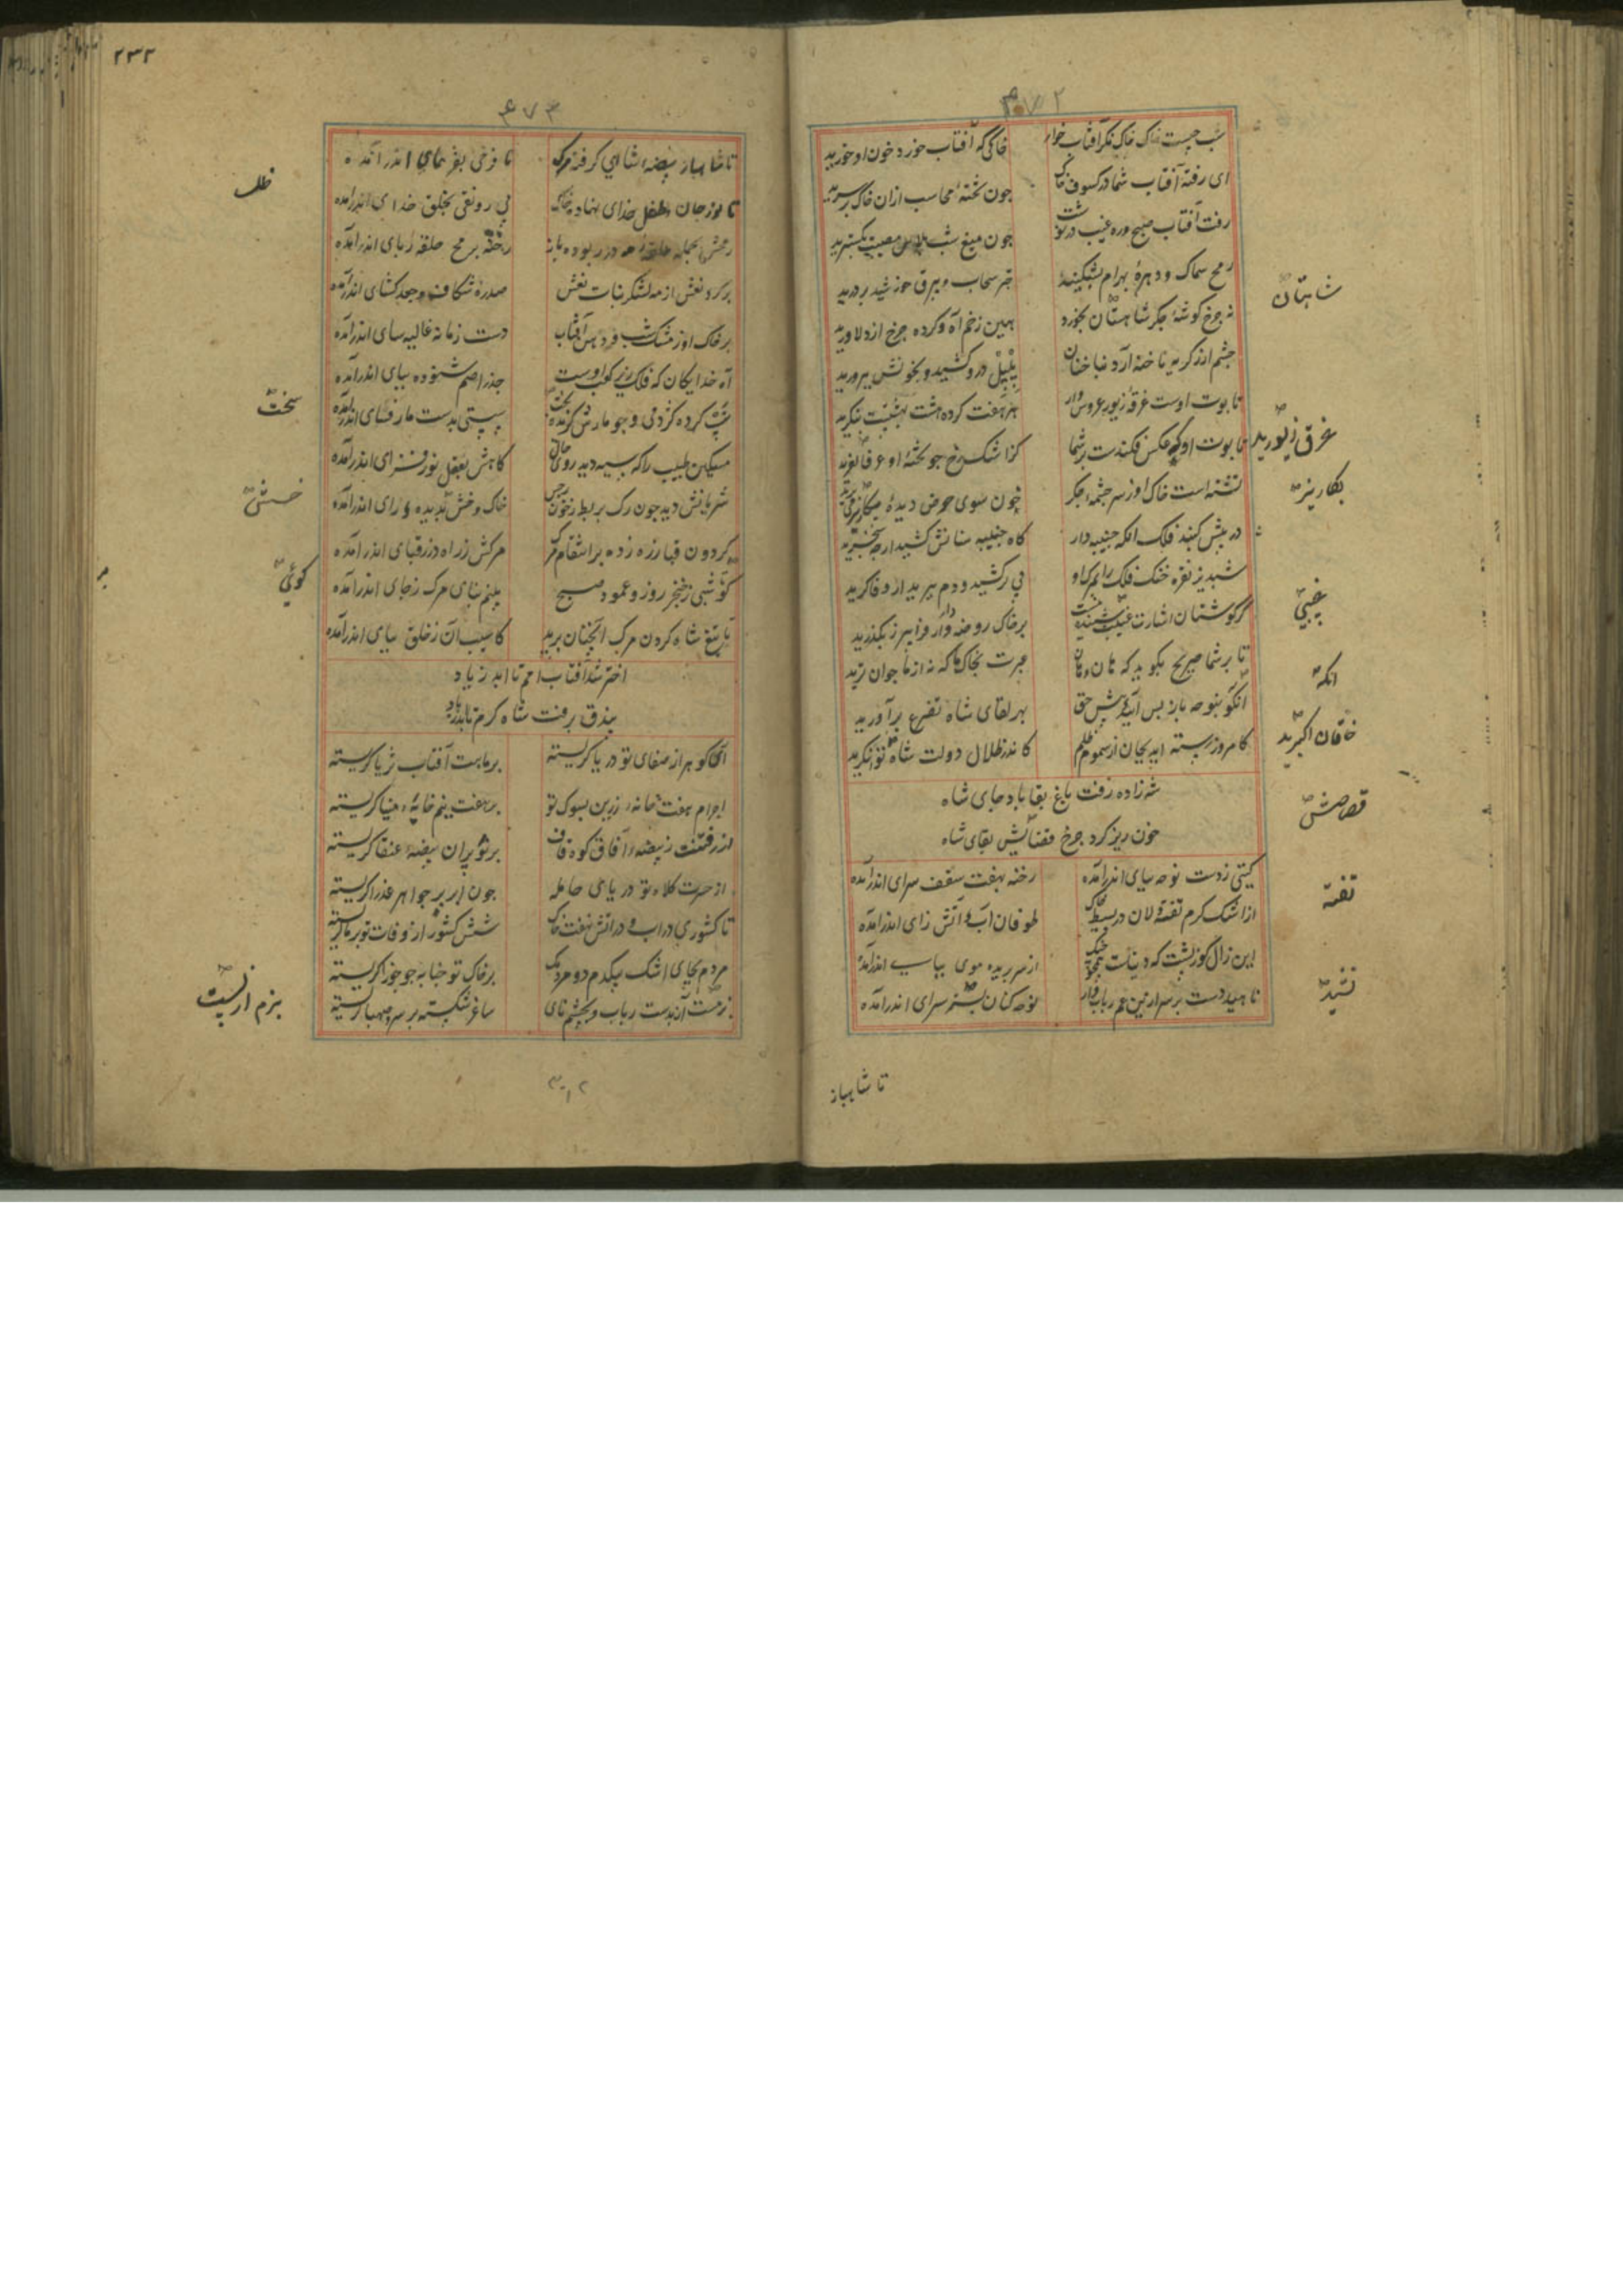 ۴۷۲
شب چیست خاک خاک نگر آفتاب خوار
خاکی که آفتاب خورد خون او خورید
ای رفته آفتاب شما در کسوف خاک
چون تختهٔ محاسب ازان خاک بر سرید
رفت آفتاب صبح وره غیب در نوشت
چون میغ شب پلاس مصیبت بگسترید
رمح سماک و دهرهٔ بهرام بشکنید
چتر سحاب و بیرق خورشید بردرید
نه چرخ گوشهٔ جگر شاهتان بخورد
هین زخم آه و کرده چرخ از دلاورید
چشم از گریه ناخنه آرد نباخنان
پلپل در و کشید و بخونش بپرورید
تابوت اوست غرقهٔ زیور عروس وار
هر هفت کرده هشت بهشتست بنگرید
تابوت او که عکس فکندست بر شما
کز اشک رخ چو تختهٔ او غرقا لغرید
تشنه است خاک او ز سر چشمهٔ جگر
خون سوی حوض دیده
در پیش گنبد فلک انکه جنیبه دار
گاه جنیبه
شبدیز نقره خنک فلک را بمرک او
پی برکشید و دم ببرید ار وفا گرید
گر گوشتان اشارت غیبت شنیده نیست
بر خاک روضه وار فرابرز بگذرید
تا بر شما صریح بگوید که هان و هان
عبرت بخاک ما که نه از ما جوان ترید
انگو بنوحه باز پس آئید پیش حق
بهر بقای شاه تضرع برآورید
کامروز رسته اید بجان از سموم ظلم
کاندر ظلال دولت شاه توانگرید
شه زاده رفت باغ بقا باد جای شاه
خون ریز کرد چرخ قضاایش بقای شاه
گیتی ز دست نوحه بپای اندر آمده
رخنه بهفت سقف سرای اندر آمده
از اشک گرم تفته دلان در بسیط خاک
طوفان آب و آتش زای اندر آمده
این زال گوژپشت که دنیاست همچو چنگ
از سر بریده موی بپای اندر آمده
ناهید دست بر سر ازین غم رباب وار
نوحه کنان بستر سرای اندر آمده
شاهتان
غرق زیورید
بکاریز
غیبی
انکه
خاقان اکبرید
قصاصش
تفته
نشید
تا شاهباز
۲۳۲
۴۷۳
تا شاهباز بیضهٔ شاهی گرفته مرک
تا فرخی بفر همای اندر آمده
تا نور جان و ظل خدای نهاد بخاک
بی رونقی بخلق خدای اندر آمده
رمحش بحمله حلقهٔ مه در ربوده باز
رخنه برمح حلقه ربای اندر آمده
بر گرد نعش از مه لشکر بنات نعش
صدره شکاف و جعد کشای اندر آمده
بر خاک او ز مشک شب و دهن آفتاب
دست زمانه غالیه سای اندر آمده
آه خدایگان که فلک زیر کعب اوست
جذر اصم شنوده بپای اندر آمده
تپ کرده کژدمی و چو مارش گزیده
سستی بدست مار فسای اندر آمده
مسکین طبیب را که سیه دید روی حال
کاهش بعقل نور فزای اندر آمده
شریانش دید چون رگ بربط ز خون
خاک و خش بدیده و رای اندر آمده
گردون قبا زره زده بر انتقام مرک
مرگش ز راه درز قبای اندر آمده
گوئی شبی ز خنجر روز و عمود صبح
بینم بپای مرک ز جای اندر آمده
یا تیغ شاه گردن مرک آنچنان برید
کاسیب آن ز خلق بپای اندر آمده
اختر شد آفتاب امم تا ابد زیاد
بیذق برفت شاه کرم تا ابد زیاد
ای گوهر از صفای تو دریا گریسته
بر ماهت آفتاب ثریا گریسته
اجرام هفت خانهٔ زرین بسوک تو
بر هفت بیم خانهٔ مینا گریسته
از رفتنت ز بیضهٔ آفاق کوه قاف
بر تو بران بیضهٔ عنقا گریسته
از حسرت کلاه تو دریای حامله
چون ابر بر جواهر عذرا گریسته
تا کشوری در اب و در آتش نهفت خاک
شش کشور از وفات تو بر ما گریسته
مردم بجای اشک بیکدم دو مردمک
بر خاک تو جنابه چو جوزا گریسته
بزم است آن بدست رباب و بچشم نای
ساغر شکسته بر سر و صهبا گریسته
ظل
سخت
خش
گوئی
بزم از پست